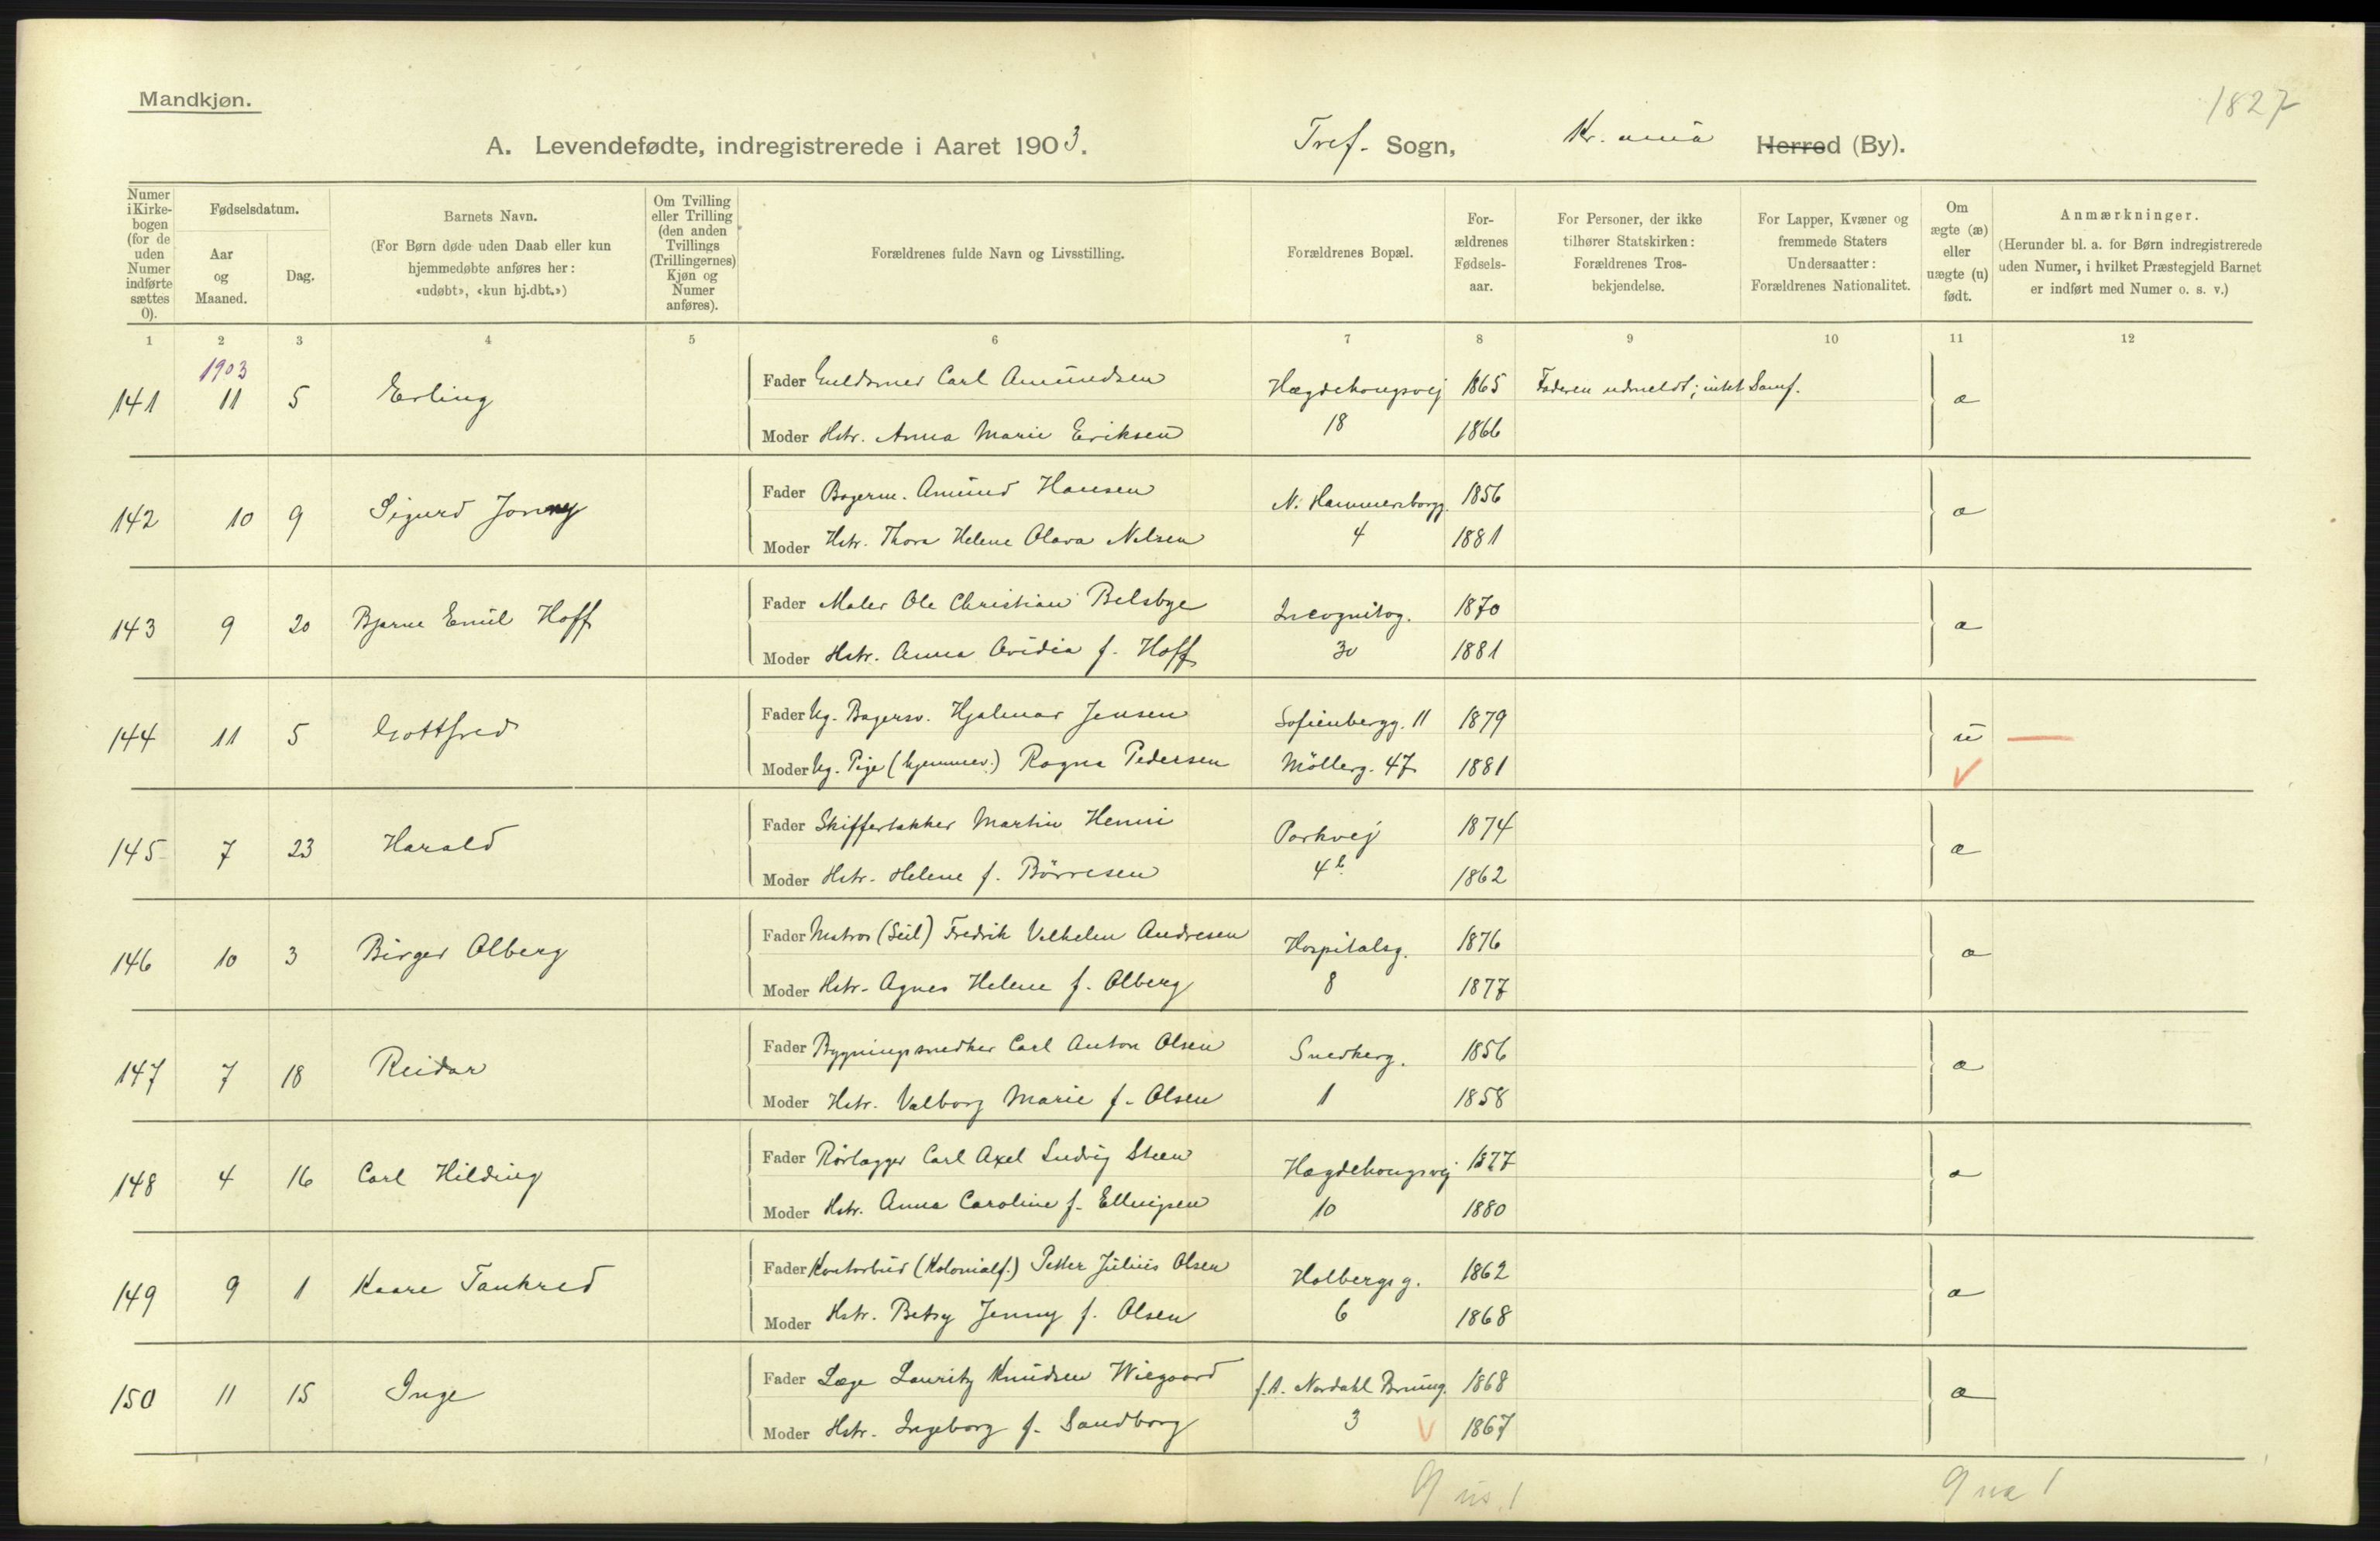 1827
Mandkjøn.
A. Levendefødte, indregistrerede i Aaret 1903. Tref. Sogn, Kr. ania Herred (By).
Numer i Kirke-bogen (for de uden Numer indførte sættes 0).
Fødselsdatum.
Aar og Maaned.
Dag.
Barnets Navn.
(For Børn døde uden Daab eller kun hjemmedøbte anføres her: «udøbt», «kun hj.dbt.»)
Om Tvilling eller Trilling (den anden Tvillings (Trillingernes) Kjøn og Numer anføres).
Forældrenes fulde Navn og Livsstilling.
Forældrenes Bopæl.
For-ældrenes Fødsels-aar.
For Personer, der ikke tilhører Statskirken: Forældrenes Tros-bekjendelse.
For Lapper, Kvæner og fremmede Staters Undersaatter: Forældrenes Nationalitet.
Om ægte (æ) eller uægte (u) født.
Anmærkninger.
(Herunder bl. a. for Børn indregistrerede uden Numer, i hvilket Præstegjeld Barnet er indført med Numer o. s. v.)
1 2 3 4 5 6 7 8 9 10 11 12
1903
141 11 5 Erling Fader Guldsmed Carl Amundsen Hægdehougsvej 1865 Faderen udmeldt; intet Samf. æ
Moder Hstr. Anna Marie Eriksen 18 1866
142 10 9 Sigurd Jonny Fader Bagerm. Amund Hansen N. Hammersborgg. 1856 æ
Moder Hstr. Thora Helene Olava Nelsen 4 1881
143 9 20 Bjarne Emil Hoff Fader Maler Ole Christian Belsbye Incognitog. 1870 æ
Moder Hstr. Anna Ovidia f. Hoff 30 1881
144 11 5 Gottfred Fader Ug. Bagersv. Hjalmar Jensen Sofienbergg. 11 1879 u
Moder Ug. Pige (hjemmev.) Ragna Pedersen Möllerg. 47 1881
145 7 23 Harald Fader Skiffertækker Martin Henni Parkvej 1874 æ
Moder Hstr. Helene f. Börresen 4b. 1862
146 10 3 Birger Olberg Fader Matros (Seil) Fredrik Vilhelm Andresen Hospitalsg. 1876 æ
Moder Hstr. Agnes Helene f. Olberg 8 1877
147 7 18 Reidar Fader Bygningssnedker Carl Anton Olsen Snedkerg. 1856 æ
Moder Hstr. Valborg Marie f. Olsen 1 1858
148 4 16 Carl Hilding Fader Rörlægger Carl Axel Ludvig Steen Hægdehougsvej 1877 æ
Moder Hstr. Anna Caroline f. Ellingsen 10 1880
149 9 1 Kaare Tankred Fader Kontorbud (Kolonialf.) Petter Julius Olsen Holbergs g. 6 1862 æ
Moder Hstr. Betsy Jenny f. Olsen 1868
150 11 15 Inge Fader Læge Lauritz Knudsen Wiegaard f.A. Nordahl Brung. 1868 æ
Moder Hstr. Ingeborg f. Sandborg 3 1867